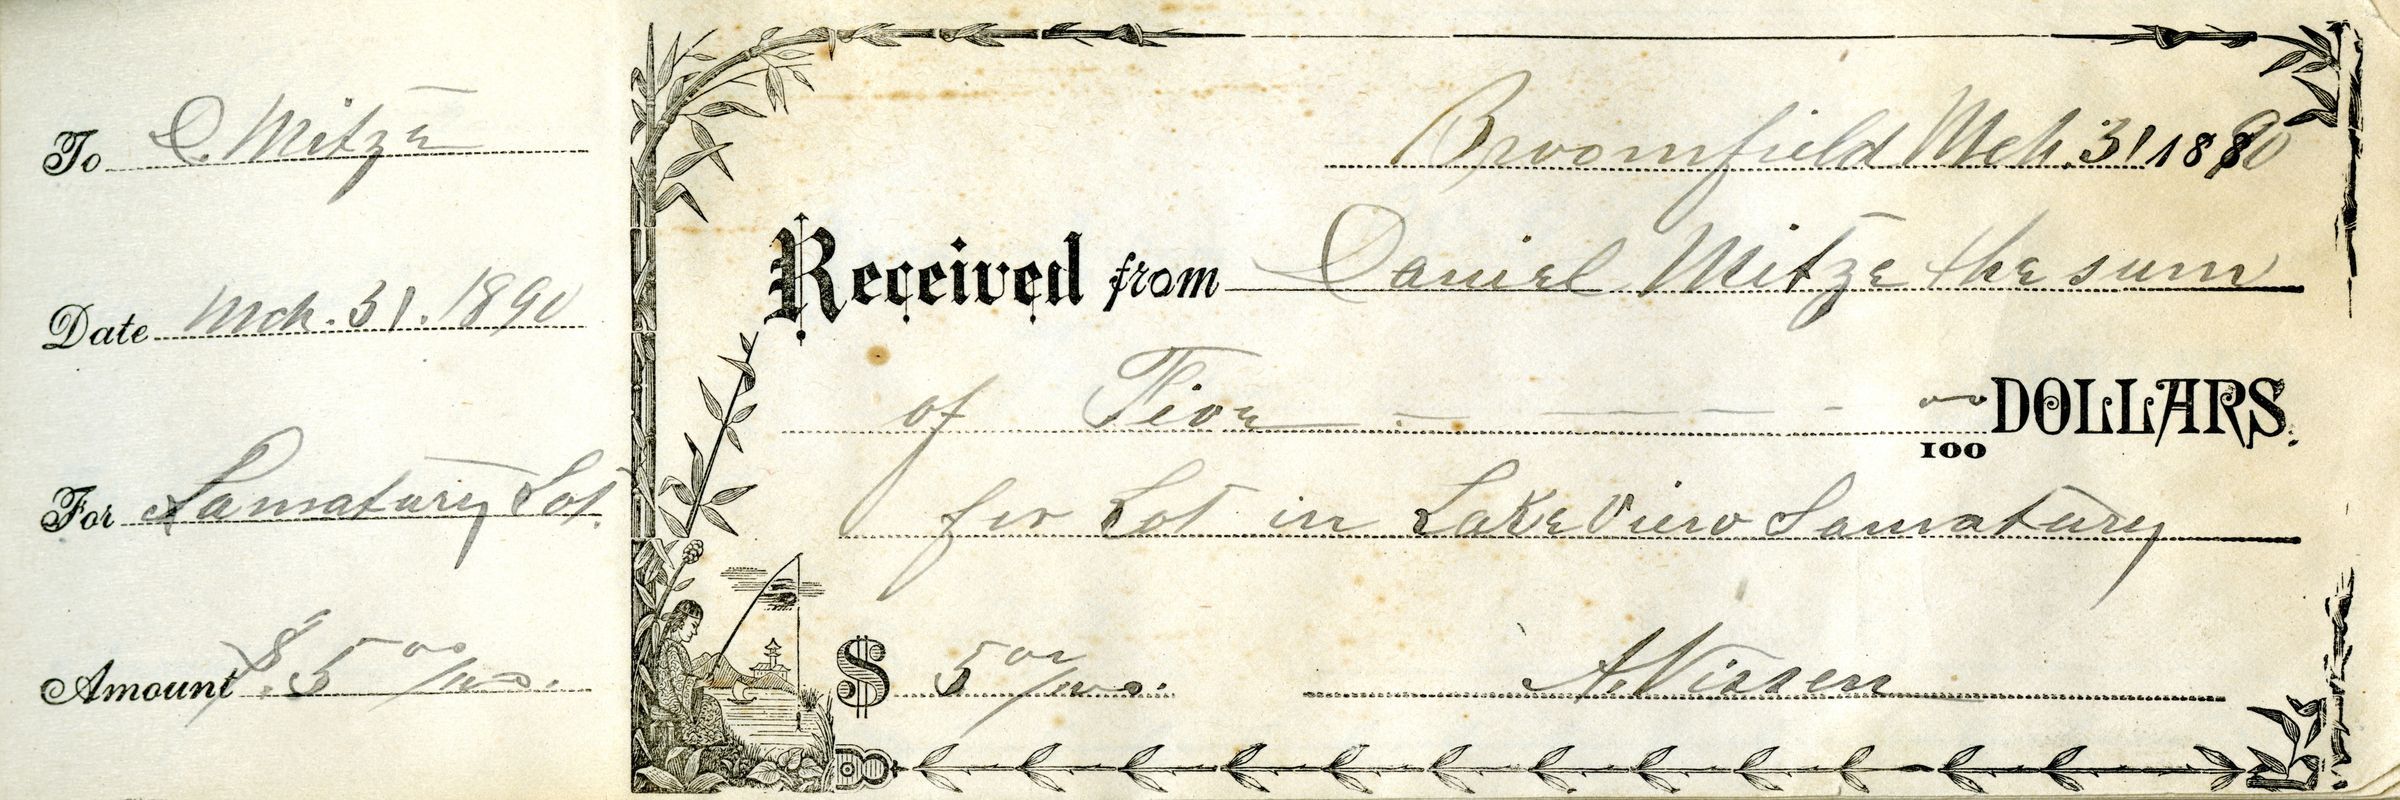 To C. Mitze
Date Mch. 31. 1890
For Samatary Lot.
Amount $.5 00/100.
Broomfield Mch. 31 18890
Received from Daniel Mitze the sum
of Five — — — — 00/100 DOLLARS.
for Lot in Lake View Samatary
$ 5 00/100. A. Nissen